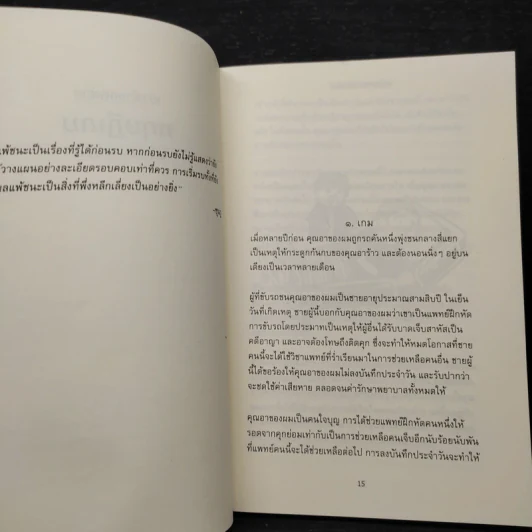 แพ้ชนะเป็นเรื่องที่รู้ได้ก่อนรบ หากก่อนรบยังไม่รู้แสดงว่ายัง
วางแผนอย่างละเอียดรอบคอบเท่าที่ควร การเริ่มรบทั้งที่ยัง
ผลแพ้ชนะเป็นสิ่งที่พึงหลีกเลี่ยงเป็นอย่างยิ่ง”
๑. เกม
เมื่อหลายปีก่อน คุณอาของผมถูกรถคันหนึ่งพุ่งชนกลางสี่แยก
เป็นเหตุให้กระดูกก้นกบของคุณอาร้าว และต้องนอนนิ่งๆ อยู่บน
เตียงเป็นเวลาหลายเดือน
ผู้ที่ขับรถชนคุณอาของผมเป็นชายอายุประมาณสามสิบปี ในเย็น
วันที่เกิดเหตุ ชายผู้นี้บอกกับคุณอาของผมว่าเขาเป็นแพทย์ฝึกหัด
การขับรถโดยประมาทเป็นเหตุให้ผู้อื่นได้รับบาดเจ็บสาหัสเป็น
คดีอาญา และอาจต้องโทษถึงติดคุก ซึ่งจะทำให้หมดโอกาสที่ชาย
คนนี้จะได้ใช้วิชาแพทย์ที่ร่ำเรียนมาในการช่วยเหลือคนอื่น ชายผู้
นี้ได้ขอร้องให้คุณอาของผมไม่ลงบันทึกประจำวัน และรับปากว่า
จะชดใช้ค่าเสียหาย ตลอดจนค่ารักษาพยาบาลทั้งหมดให้
คุณอาของผมเป็นคนใจบุญ การได้ช่วยแพทย์ฝึกหัดคนหนึ่งให้
รอดจากคุกย่อมเท่ากับเป็นการช่วยเหลือคนเจ็บอีกนับร้อยนับพัน
ที่แพทย์คนนี้จะได้ช่วยเหลือต่อไป การลงบันทึกประจำวันจะทำให้
15